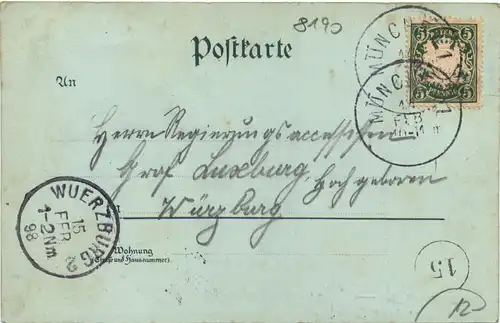 8190
Postkarte
MÜNCHEN
BAYERN
5 5
MÜNCHEN
FEB
An
Herrn Regierungsaccessisten
Graf Luxburg, Hochgeboren
Würzburg
WUERZBURG 2
15
FEB
1-2Nm
98
Wohnung
(Straße und Hausnummer)
15
12